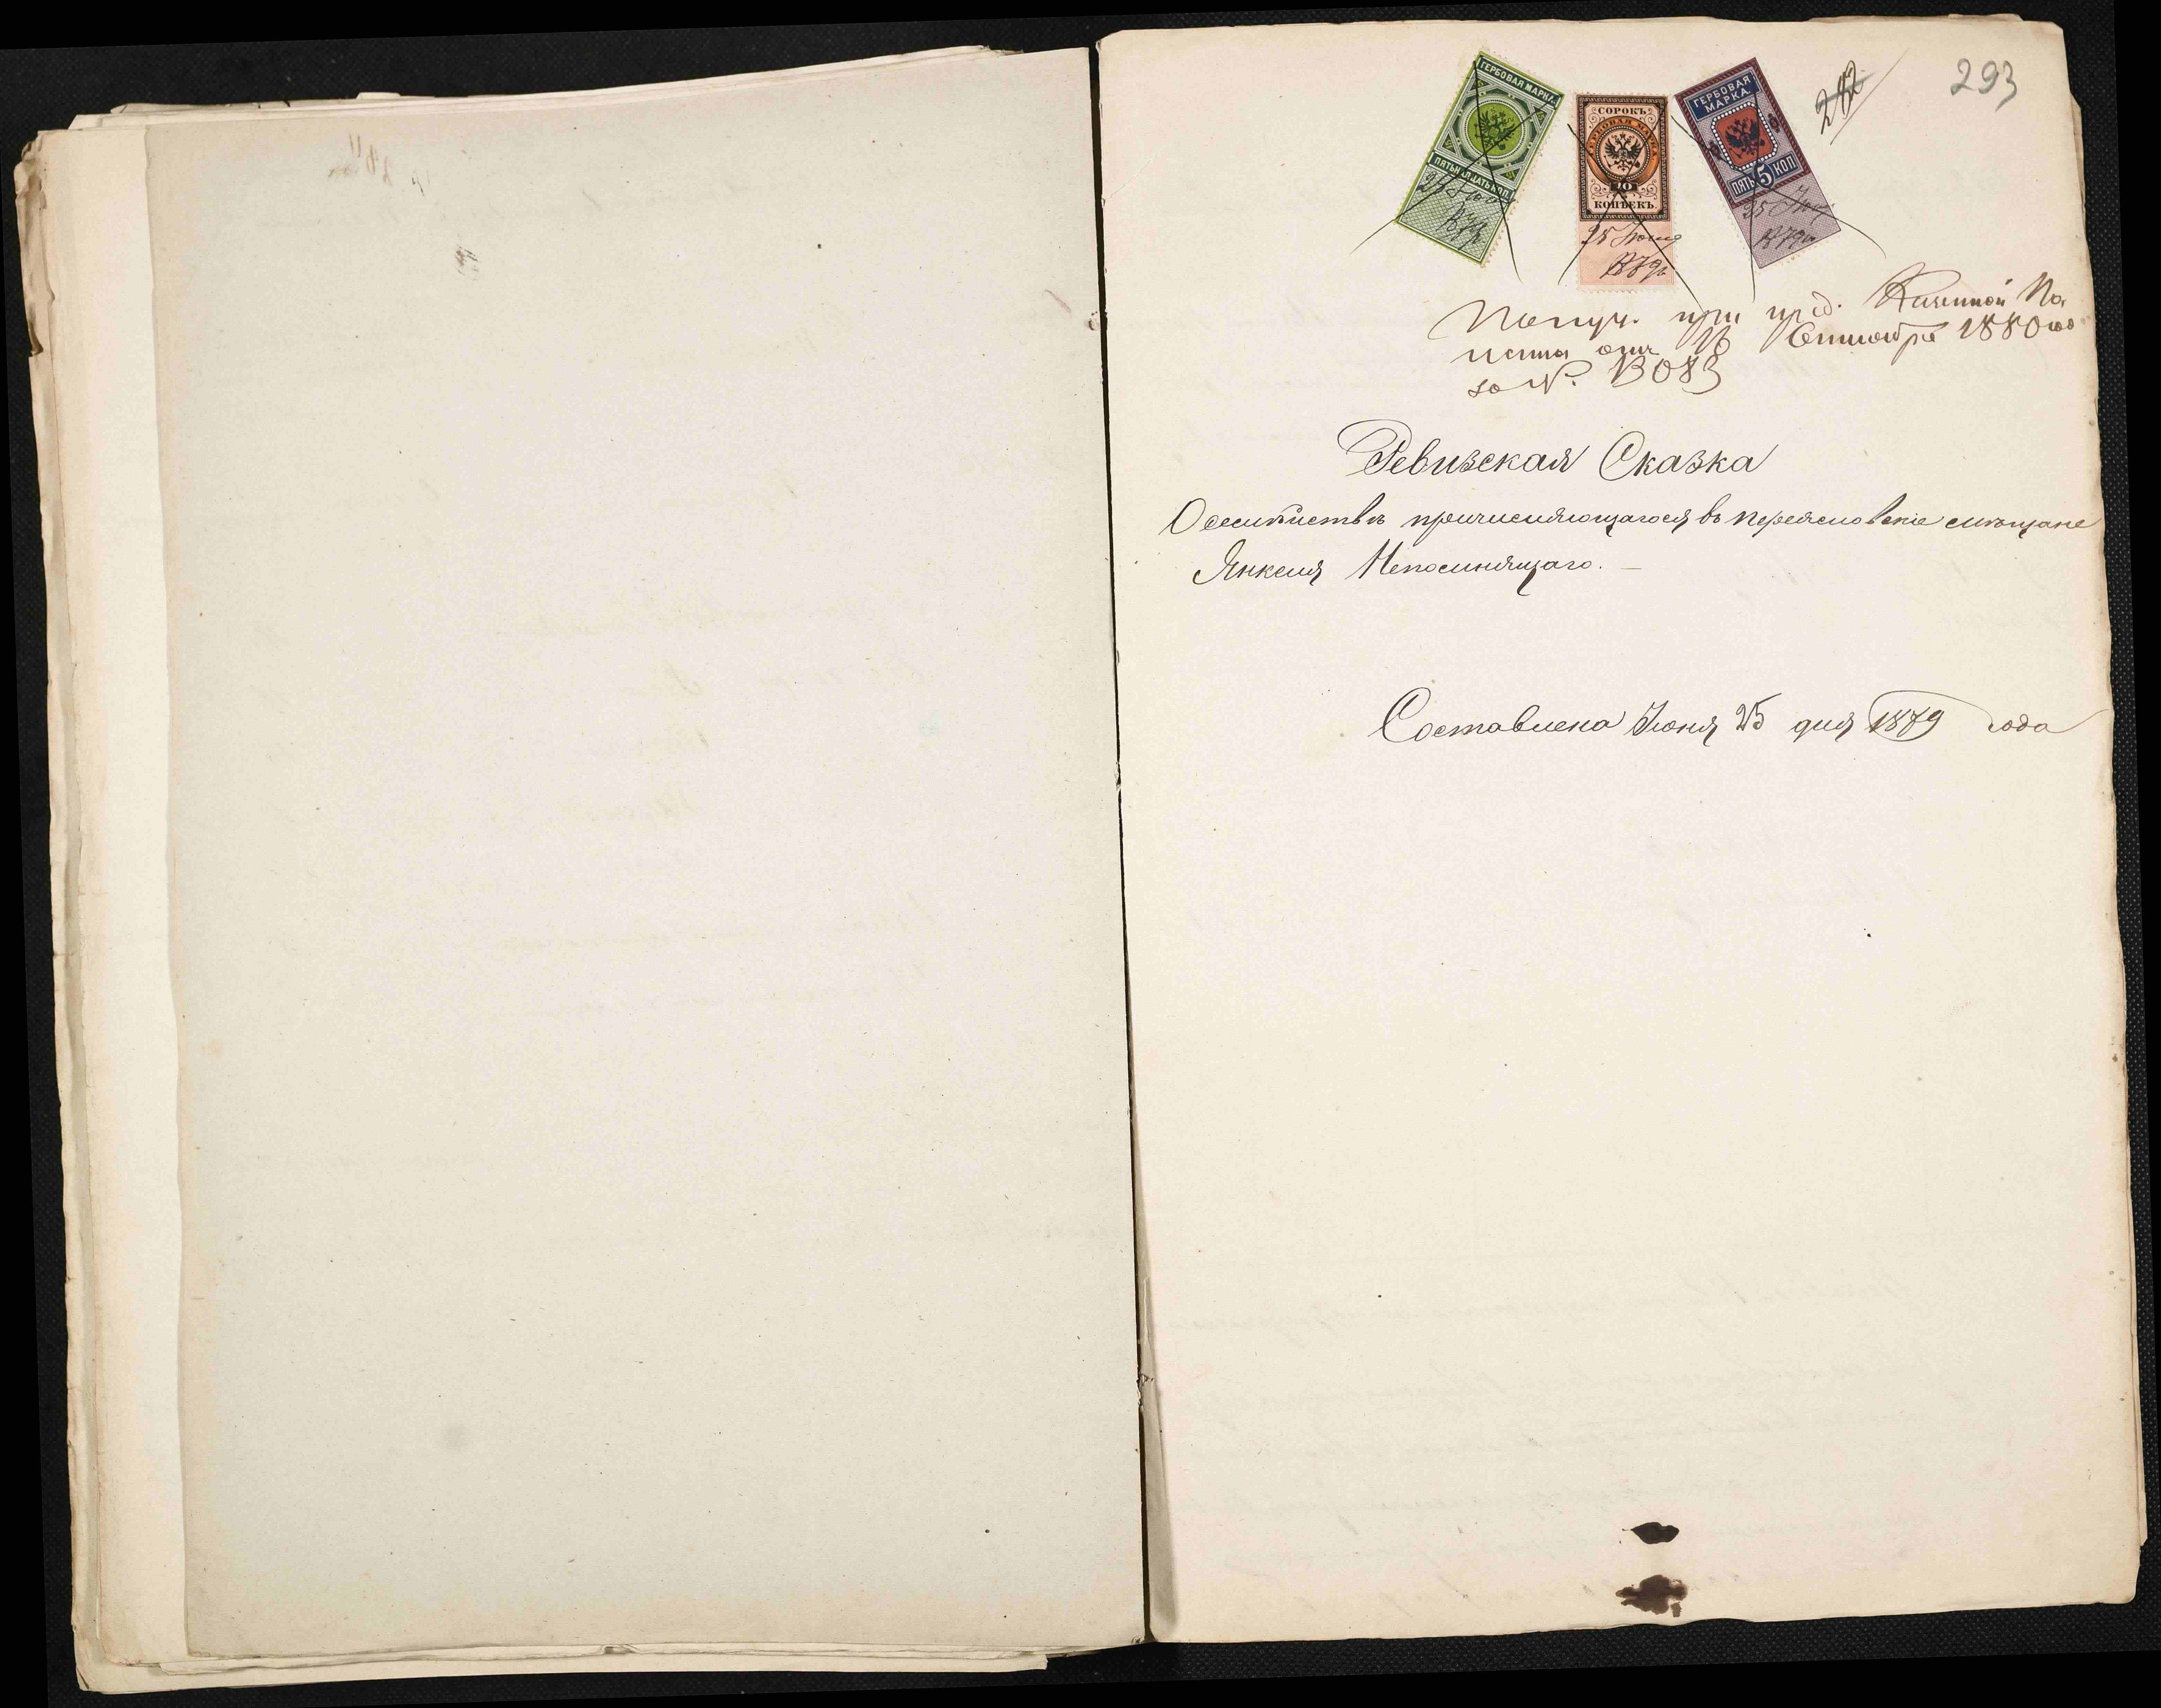 293
282
ГЕРБОВАЯ МАРКА.
ПЯТНАДЦАТЬ КОП.
25 Июня
1879
СОРОКЪ
ГЕРБОВАЯ МАРКА
40
КОПѢЕКЪ.
25 Июня
1879
ГЕРБОВАЯ
МАРКА.
ПЯТЬ 5 КОП
25 Июн
1879
Получ. при пред. Казенной Па
латы отъ Сентября 1880 год
за №. 13083
Ревизская Сказка
О семействѣ причисляющагося въ переяславскіе мѣщане
Янкеля Непомнящаго.
Составлена Июня 25 дня 1879 года